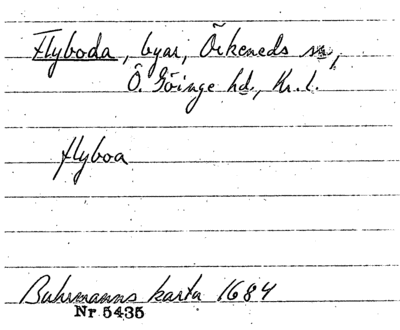 Flyboda, byar, Örkeneds sn,
Ö. Göinge hd., Kr. l.
flyboa
Buhrmanns karta 1684
Nr 5435